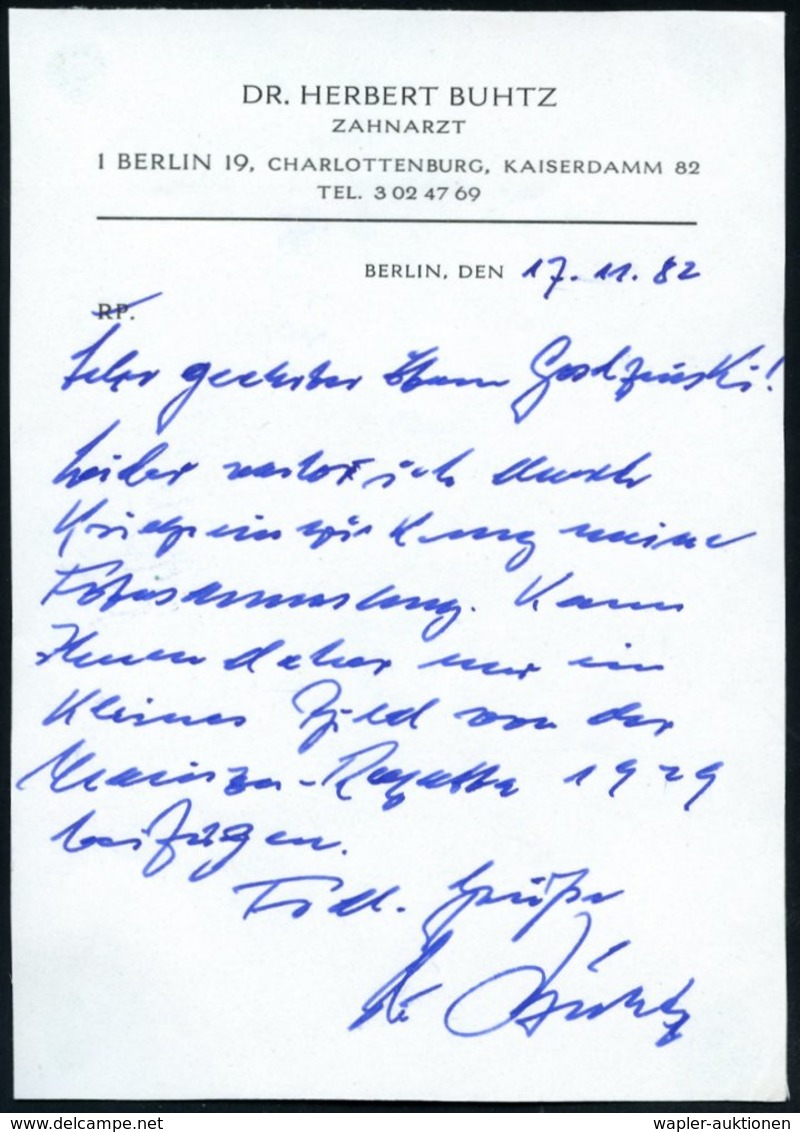 DR. HERBERT BUHTZ
ZAHNARZT
1 BERLIN 19, CHARLOTTENBURG, KAISERDAMM 82
TEL. 3 02 47 69
BERLIN, DEN 17. 11. 82
RP.
Sehr geehrter Herr Godzinski!
Leider verlor ich durch
Kriegseinwirkung meine
Fotosammlung. Kann
Ihnen daher nur ein
kleines Bild von der
Mainzer-Regatta 1929
beifügen.
Frdl. Grüße
Dr. Buhtz
www.delcampe.net
wapler-auktionen